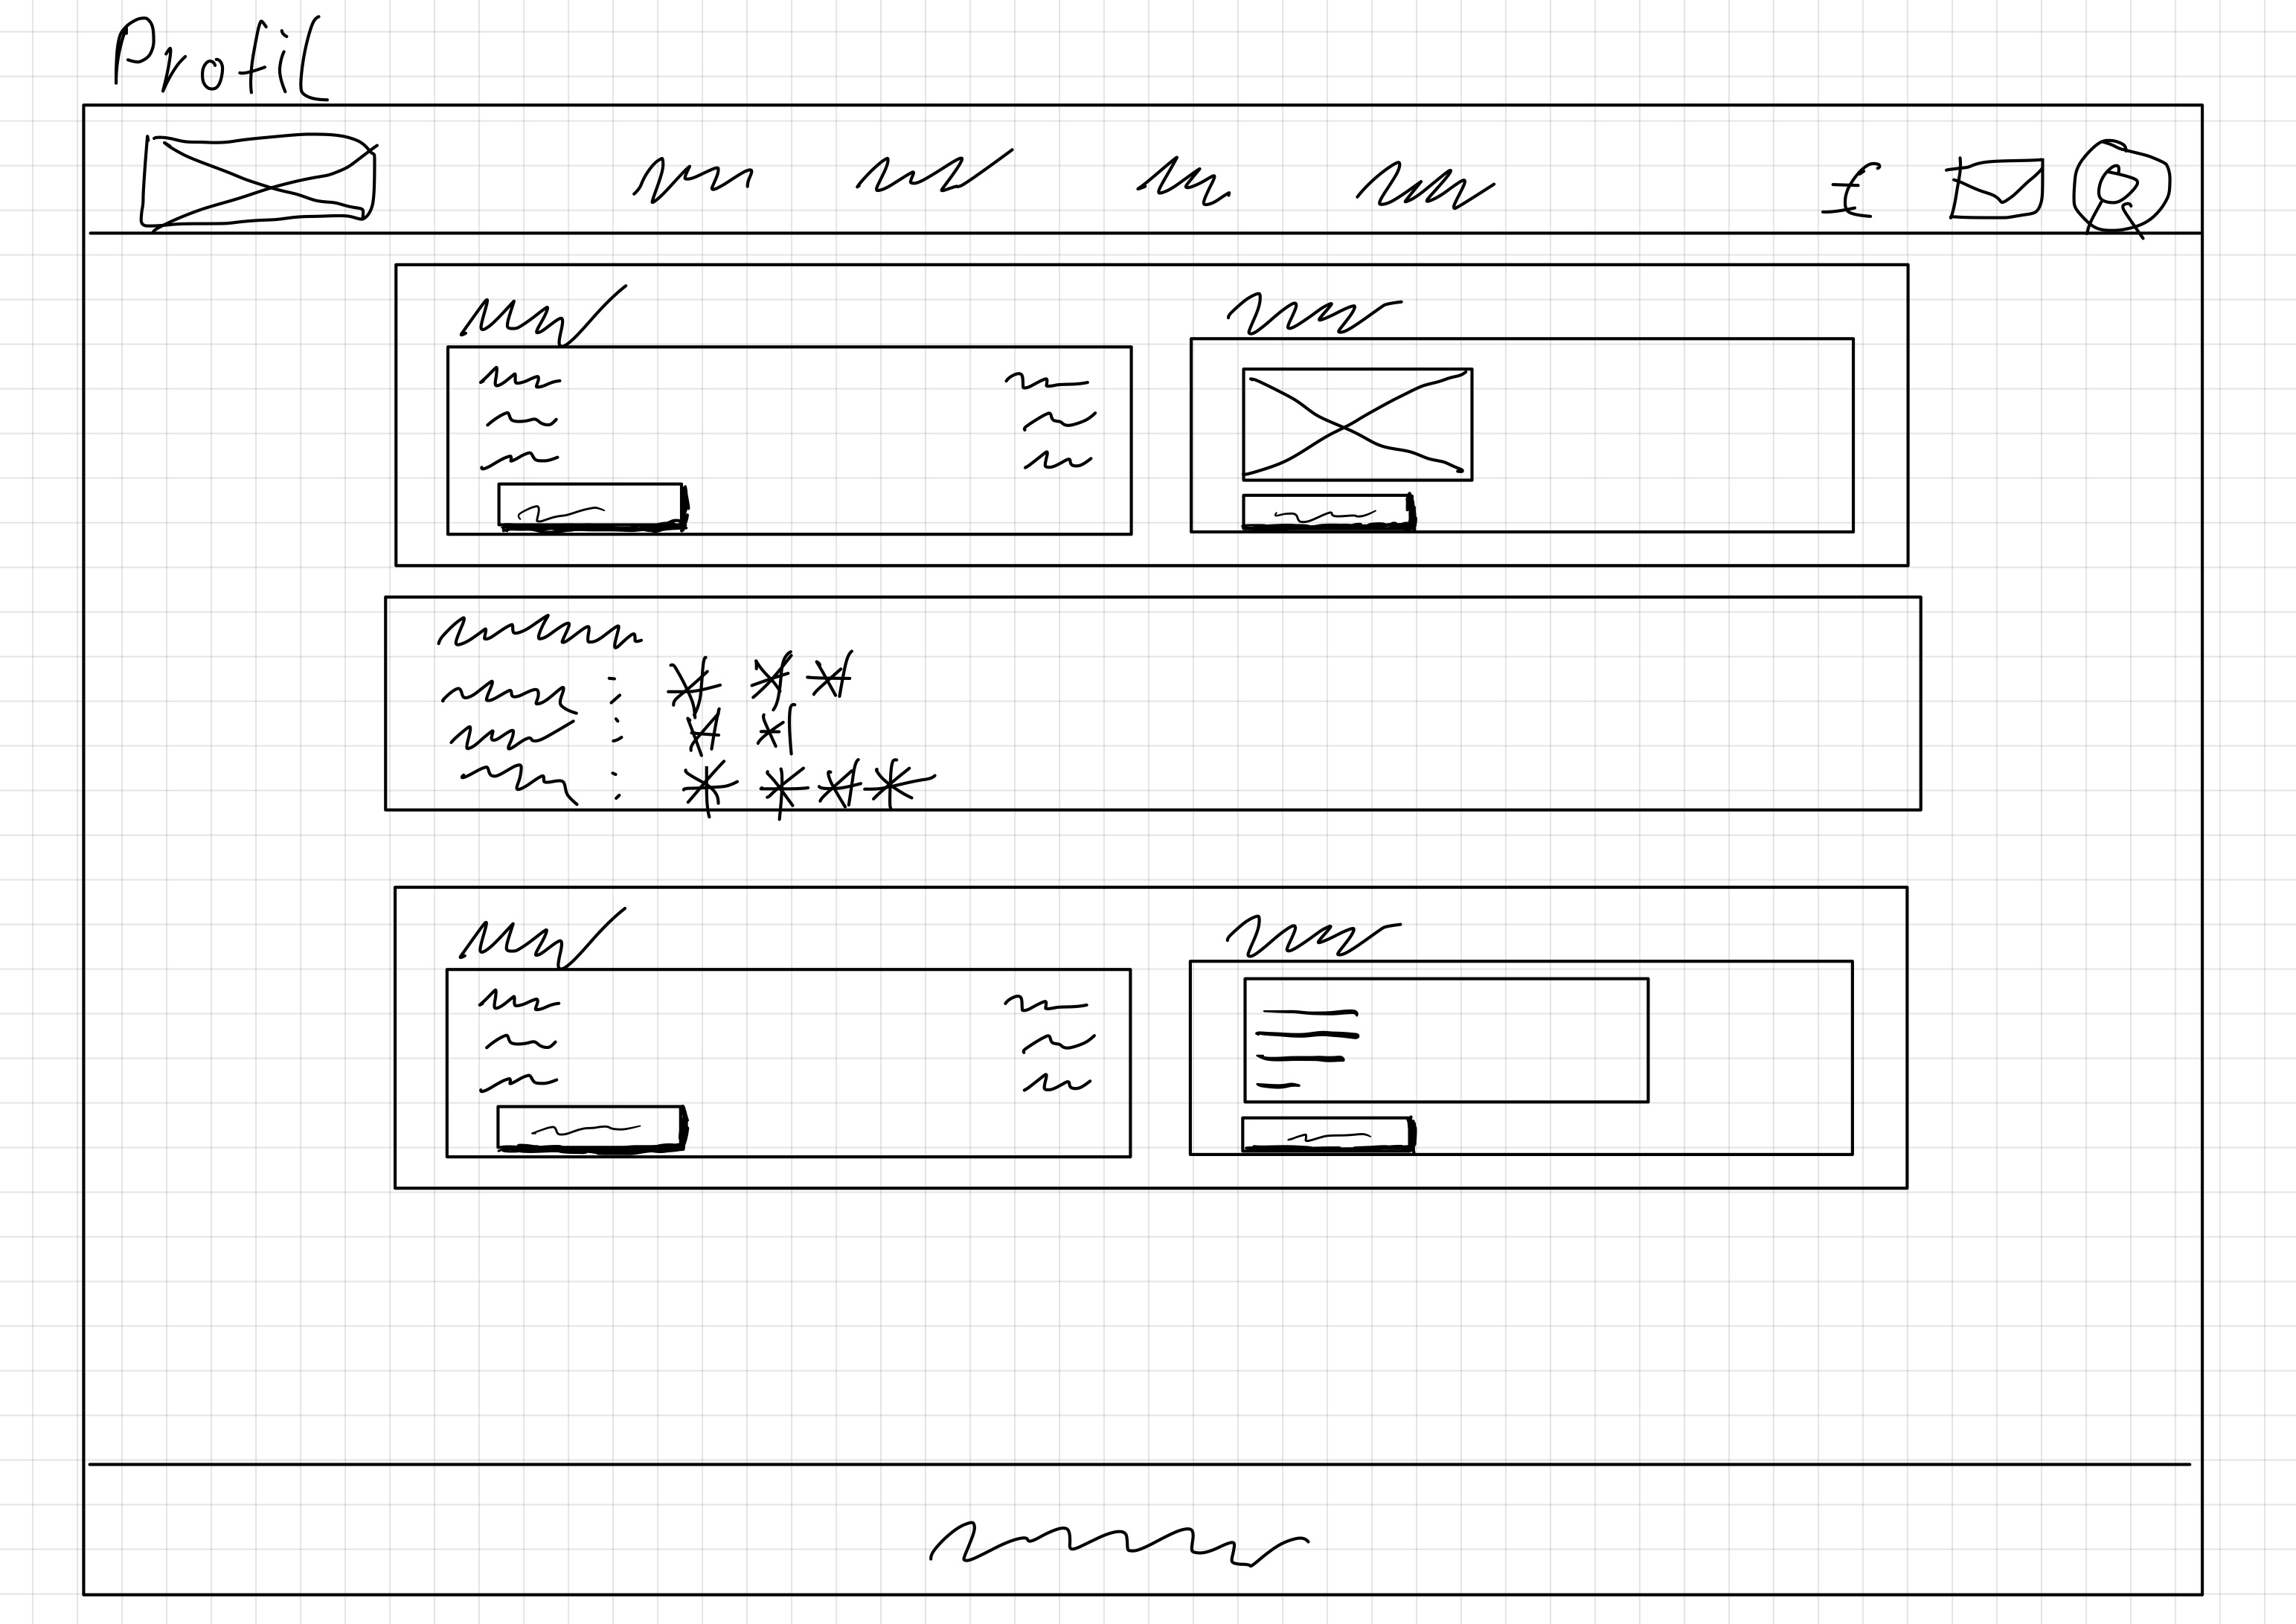 Profil
£